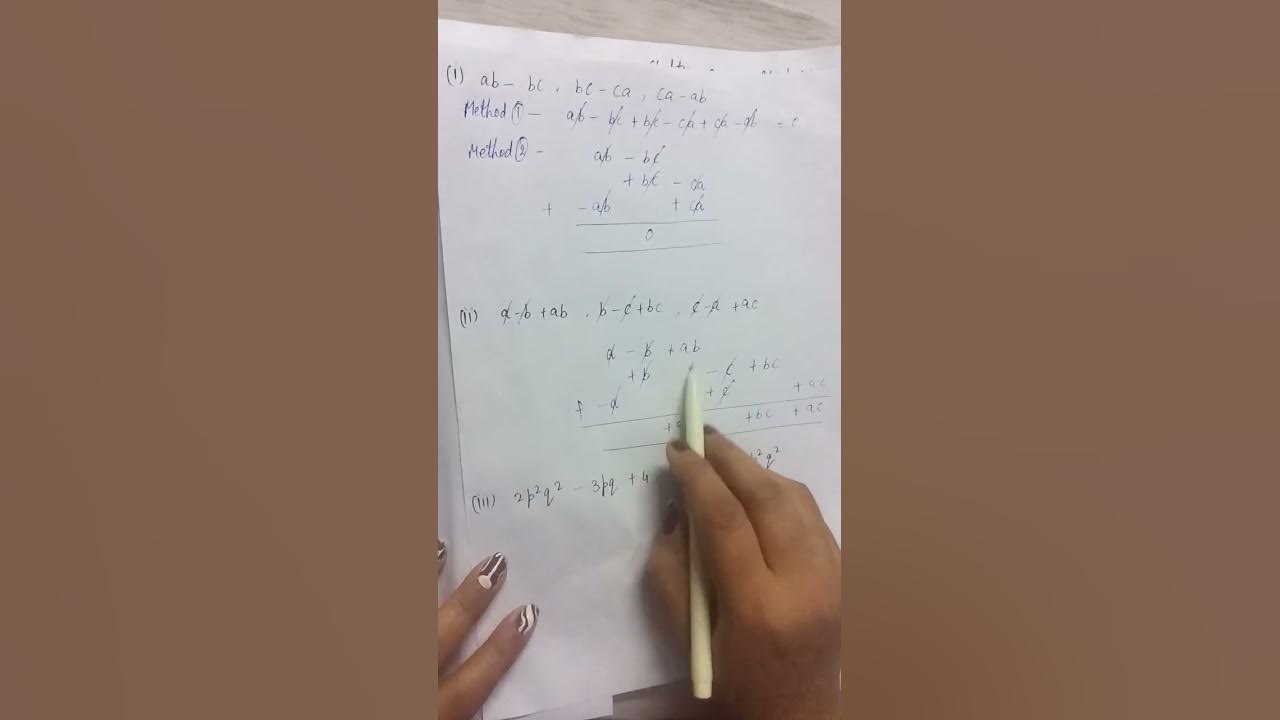 (i) ab - bc , bc - ca , ca - ab
Method ① - ab - bc + bc - ca + ca - ab =
Method ② - ab - bc
+ bc - ca
+ - ab + ca
0
(ii) a - b + ab , b - c + bc , c - a + ac
a - b + ab
+ b - c + bc
+ - a + c + ac
+ bc + ac
(iii) 2p²q² - 3pq + 4